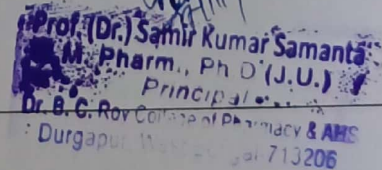 Prof. (Dr.) Samir Kumar Samanta
M. Pharm., Ph D (J.U.)
Principal
Dr. B. C. Roy College of Pharmacy & AHS
Durgapur 713206